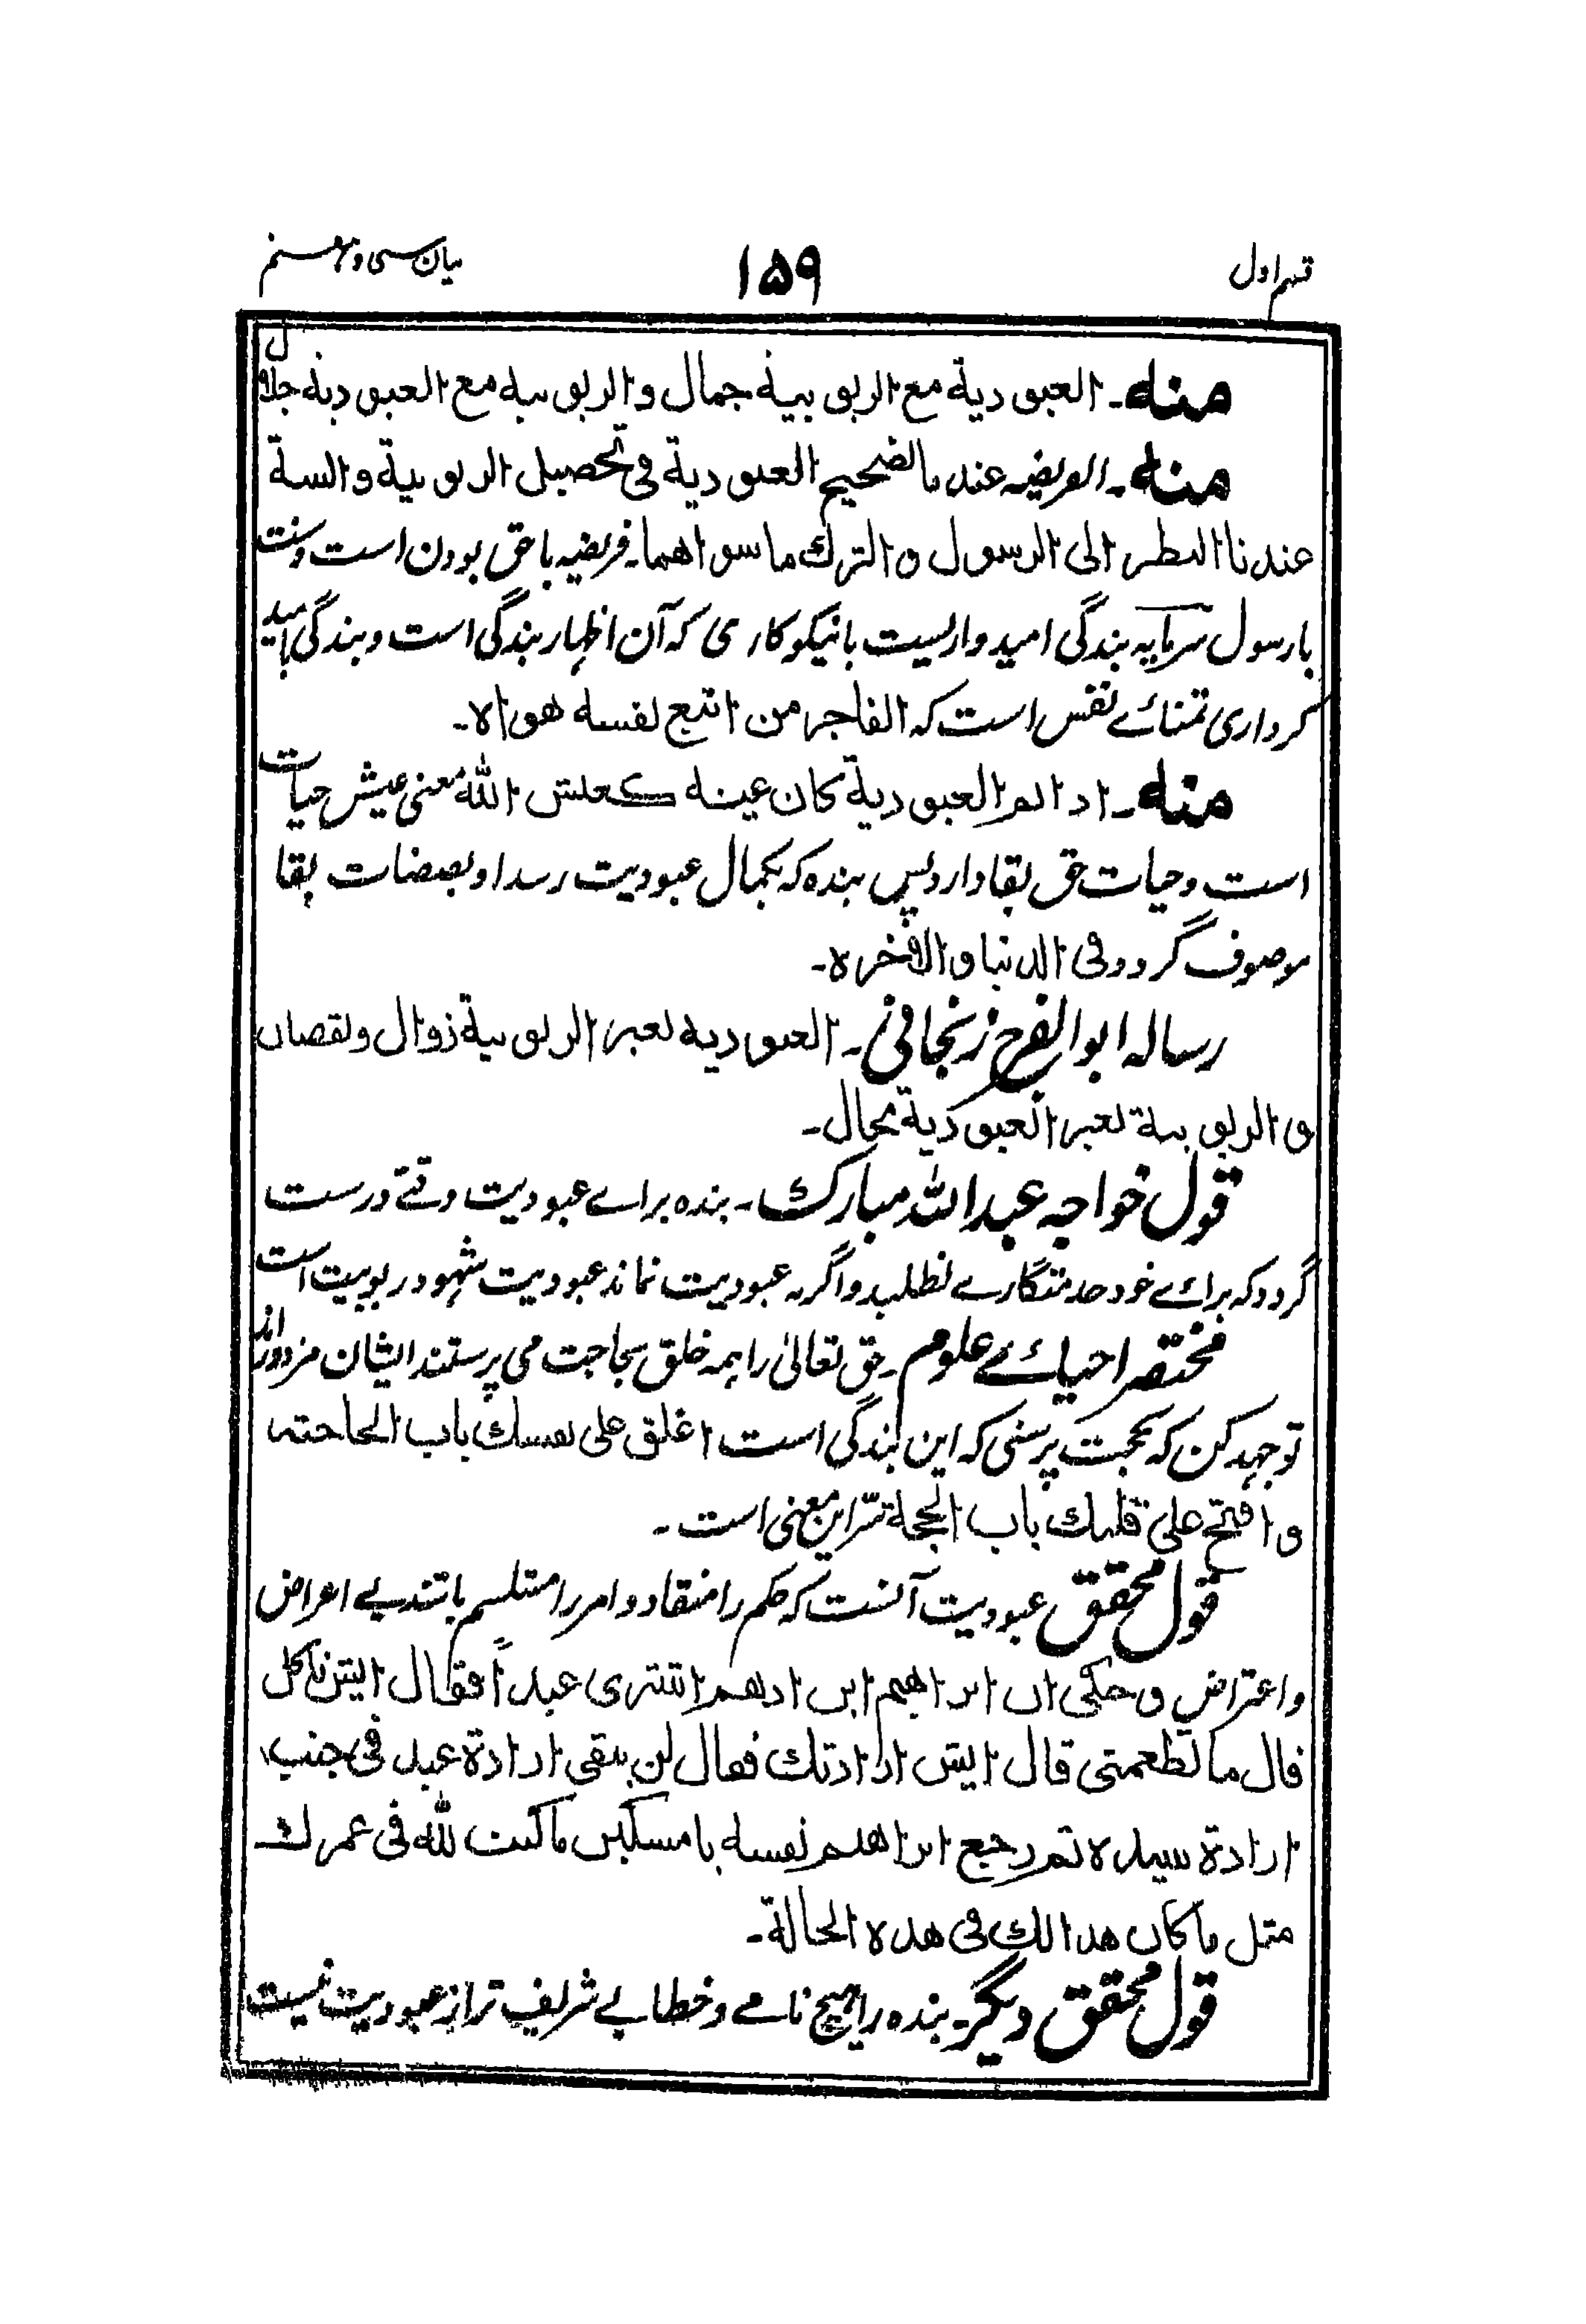 قسم اول
۱۵۹
بیان سی و
منه۔ العبودية مع الربوبية جمال و الربوبية مع العبودية جلال
منه۔ الفريضة عندنا الصحيح العبودية في تحصيل الربوبية و السنة
عندنا النظر الى الرسول و الترك ما سواهما۔ فریضه با حق بودن است و سنت
با رسول سرمایه بندگی امیدواریست با نیکوکاری که آن اظهار بندگی است و بندگی با امید
کرداری تمنائے نفس است که الفاجر من اتبع نفسه هواه۔
منه۔ اذا تم العبودية كان عيشه كعيش الله معنی عیش حیات
است و حیات حق بقا دارد پس بنده که بکمال عبودیت رسد او بصفات بقا
موصوف گردد فی الدنيا و الآخرة۔
رساله ابو الفرح زنجانی۔ العبودية لغير الربوبية زوال و نقصان
و الربوبية لغير العبودية محال۔
قول خواجه عبد الله مبارک۔ بنده برائے عبودیت وقتے درست
گردد که برائے خود خدمتگارے نطلبد و اگر نه عبودیت نماند عبودیت شهود ربوبیت است
مختصر احیائے علوم۔ حق تعالیٰ را همه خلق بحاجت می پرستند ایشان مزدوراند
تو جهد کن که بمحبت پرستی که این بندگی است اغلق على نفسك باب الحاجة
و افتح على قلبك باب المحبة سّر این معنی است۔
قول محقق عبودیت آنست که حکم را منقاد و امر را مستسلم باشد بے اعراض
و اعتراض و حكى ان ابراهيم ابن ادهم اشترى عبداً فقال ايش تاكل
قال ما تطعمني قال ايش ارادتك فقال لن يبقى ارادة عبد في جنب
ارادة سيده ثم رجع ابراهيم نفسه يا مسكين ما كنت لله في عمرك
مثل ما كان هذا لك في هذه الحالة۔
قول محقق دیگر۔ بنده را هیچ نامے و خطابے شریف تر از عبودیت نیست